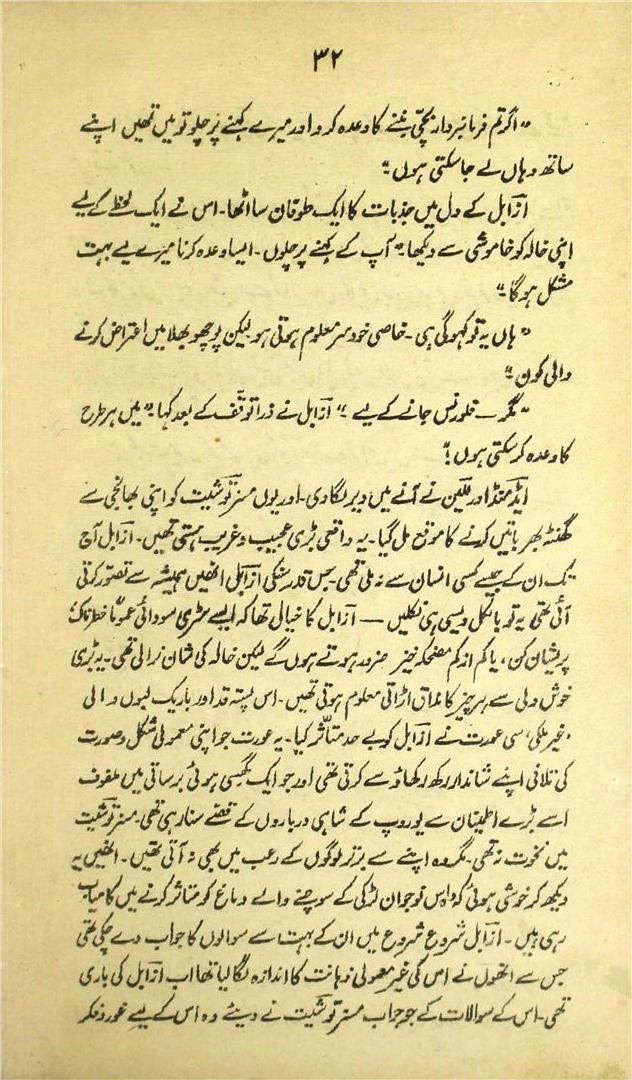 ۳۲
"اگر تم فرمانبردار بچّی بننے کا وعدہ کرو اور میرے کہنے پر چلو تو میں تمھیں اپنے
ساتھ وہاں لے جا سکتی ہوں۔"
ازابل کے دل میں جذبات کا ایک طوفان سا اٹھا۔ اس نے ایک لحظے کے لیے
اپنی خالہ کو خاموشی سے دیکھا۔ "آپ کے کہنے پر چلوں۔ ایسا وعدہ کرنا میرے لیے بہت
مشکل ہو گا۔"
"ہاں یہ تو کہو گی ہی۔ خاصی خود سر معلوم ہوتی ہو لیکن پوچھو بھلا میں اعتراض کرنے
والی کون۔"
"مگر — فلورنس جانے کے لیے۔" ازابل نے ذرا توقّف کے بعد کہا۔ "میں ہر طرح
کا وعدہ کر سکتی ہوں!"
ایڈمنڈ اور للین نے آنے میں دیر لگا دی۔ اور یوں مسز توشیت کو اپنی بھانجی سے
گھنٹہ بھر باتیں کرنے کا موقع مل گیا۔ یہ واقعی بڑی عجیب و غریب ہستی تھیں۔ ازابل آج
تک ان کے جیسے کسی انسان سے نہ ملی تھی۔ جس قدر سنکی ازابل انھیں ہمیشہ سے تصوّر کرتی
آئی تھی یہ تو بالکل ویسی ہی نکلیں — ازابل کا خیال تھا کہ ایسے سٹری سودائی عموماً خطرناک،
پریشان کن، یا کم از کم مضحکہ خیز ضرور ہوتے ہوں گے لیکن خالہ کی شان نرالی تھی۔ یہ بڑی
خوش دلی سے ہر چیز کا مذاق اڑاتی معلوم ہوتی تھیں۔ اس پستہ قد اور باریک لبوں والی
'غیر ملکی' سی عورت نے ازابل کو بے حد متأثر کیا۔ یہ عورت جو اپنی معمولی شکل و صورت
کی تلافی اپنے شاندار رکھ رکھاؤ سے کرتی تھی اور جو ایک گھسی ہوئی برساتی میں ملفوف
اسے بڑے اطینان سے یوروپ کے شاہی درباروں کے قصّے سنا رہی تھی۔ مسز توشیت
میں نخوت نہ تھی۔ مگر وہ اپنے سے برتر لوگوں کے رعب میں بھی نہ آتی تھیں۔ انھیں یہ
دیکھ کر خوشی ہوئی کہ وہ اس نوجوان لڑکی کے سوچنے والے دماغ کو متاثر کرنے میں کامیاب
رہی ہیں۔ ازابل شروع شروع میں ان کے بہت سے سوالوں کا جواب دے چکی تھی
جس سے انھوں نے اس کی غیر معمولی ذہانت کا اندازہ لگا لیا تھا اب ازابل کی باری
تھی۔ اس کے سوالات کے جو جواب مسز توشیت نے دیئے وہ اس کے لیے غور و فکر